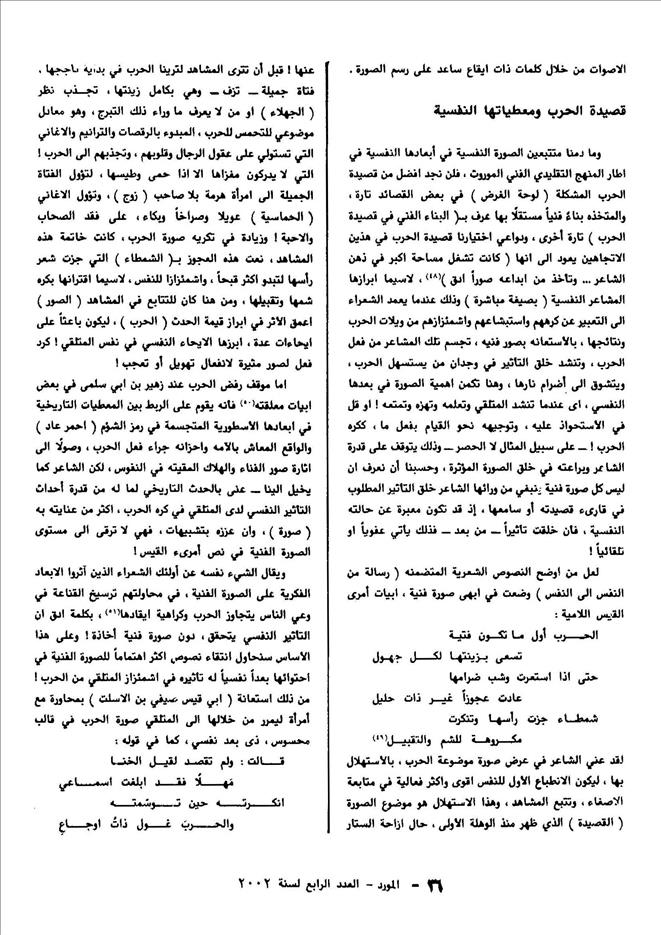 الاصوات من خلال كلمات ذات ايقاع ساعد على رسم الصورة .
قصيدة الحرب ومعطياتها النفسية
وما دمنا متتبعين الصورة النفسية في أبعادها النفسية في
اطار المنهج التقليدي الفني الموروث ، فلن نجد افضل من قصيدة
الحرب المشكلة ( لوحة الغرض ) في بعض القصائد تارة ،
والمتخذه بناءً فنياً مستقلًا بها عرف بـ( البناء الفني في قصيدة
الحرب ) تارة أخرى ، ودواعي اختيارنا قصيدة الحرب في هذين
الاتجاهين يعود الى انها ( كانت تشغل مساحة اكبر في ذهن
الشاعر ... وتأخذ من ابداعه صوراً ادق )(٤٨) ، لاسيما ابرازها
المشاعر النفسية ( بصيغة مباشرة ) وذلك عندما يعمد الشعراء
الى التعبير عن كرههم واستبشاعهم واشمئزازهم من ويلات الحرب
ونتائجها ، بالأستعانه بصور فنيه ، تجسم تلك المشاعر من فعل
الحرب ، وتنشد خلق التأثير في وجدان من يستسهل الحرب ،
ويتشوق الى أضرام نارها ، وهنا تكمن اهمية الصورة في بعدها
النفسي ، اى عندما تنشد المتلقي وتعلمه وتهزه وتمتعه ! او قل
في الأستحواذ عليه ، وتوجيهه نحو القيام بفعل ما ، ككره
الحرب ! ــ على سبيل المثال لا الحصر ــ وذلك يتوقف على قدرة
الشاعر وبراعته في خلق الصورة المؤثرة ، وحسبنا أن نعرف ان
ليس كل صورة فنية ينبغي من ورائها الشاعر خلق التأثير المطلوب
في قارىء قصيدته أو سامعها ، إذ قد تكون معبرة عن حالته
النفسية ، فان خلقت تأثيراً ــ من بعد ــ فذلك يأتي عفوياً او
تلقائياً !
لعل من اوضح النصوص الشعرية المتضمنه ( رسالة من
النفس الى النفس ) وضعت في ابهى صورة فنية ، ابيات أمرى
القيس اللامية :
الحرب أول ما تكون فتية
تسعى بزينتها لكل جهول
حتى اذا استعرت وشب ضرامها
عادت عجوزاً غير ذات حليل
شمطاء جزت رأسها وتنكرت
مكروهة للشم والتقبيل(٤٩)
لقد عني الشاعر في عرض صورة موضوعة الحرب ، بالأستهلال
بها ، ليكون الانطباع الأول للنفس اقوى واكثر فعالية في متابعة
الاصفاء ، وتتبع المشاهد ، وهذا الاستهلال هو موضوع الصورة
( القصيدة ) الذي ظهر منذ الوهلة الأولى ، حال ازاحة الستار
عنها ! قبل أن تترى المشاهد لترينا الحرب في بداية تأججها ،
فتاة جميلة ــ تزف ــ وهي بكامل زينتها ، تجذب نظر
( الجهلاء ) او من لا يعرف ما وراء ذلك التبرج ، وهو معادل
موضوعي للتحمس للحرب ، المبدوء بالرقصات والترانيم والأغاني
التي تستولي على عقول الرجال وقلوبهم ، وتجذبهم الى الحرب !
التي لا يدركون مغزاها الا اذا حمى وطيسها ، لتؤول الفتاة
الجميلة الى امرأة هرمة بلا صاحب ( زوج ) ، وتؤول الاغاني
( الحماسية ) عويلا وصراخاً وبكاء ، على فقد الصحاب
والاحبة ! وزيادة في تكريه صورة الحرب ، كانت خاتمة هذه
المشاهد ، نعت هذه العجوز بـ( الشمطاء ) التي جزت شعر
رأسها لتبدو اكثر قبحاً ، واشمئزازا للنفس ، لاسيما اقترانها بكره
شمها وتقبيلها ، ومن هنا كان للتتابع في المشاهد ( الصور )
اعمق الأثر في ابراز قيمة الحدث ( الحرب ) ، ليكون باعثاً على
ايحاءات عدة ، ابرزها الأيحاء النفسي في نفس المتلقي ! كرد
فعل لصور مثيرة لانفعال تهويل أو تعجب !
اما موقف رفض الحرب عند زهير بن ابي سلمى في بعض
ابيات معلقته(٥٠) فانه يقوم على الربط بين المعطيات التاريخية
في ابعادها الأسطورية المتجسمة في رمز الشؤم ( احمر عاد )
والواقع المعاش بآلامه واحزانه جراء فعل الحرب ، وصولًا الى
اثارة صور الفناء والهلاك المقيته في النفوس ، لكن الشاعر كما
يخيل الينا ــ عنى بالحدث التاريخي لما له من قدرة أحداث
التأثير النفسي لدى المتلقي في كره الحرب ، اكثر من عنايته به
( صورة ) ، وان عززه بتشبيهات ، فهي لا ترقى الى مستوى
الصورة الفنية في نص أمرىء القيس !
ويقال الشيء نفسه عن أولئك الشعراء الذين آثروا الابعاد
الفكرية على الصورة الفنية ، في محاولتهم ترسيخ القناعة في
وعي الناس يتجاوز الحرب وكراهية ايقادها(٥١) ، بكلمة ادق ان
التأثير النفسي يتحقق ، دون صورة فنية أخاذة ! وعلى هذا
الأساس سنحاول انتقاء نصوص اكثر اهتماماً للصورة الفنية في
احتوائها بعداً نفسياً له تأثيره في اشمئزاز المتلقي من الحرب !
من ذلك استعانة ( ابي قيس صيفي بن الاسلت ) بمحاورة مع
أمرأة ليمرر من خلالها الى المتلقي صورة الحرب في قالب
محسوس ، ذى بعد نفسي ، كما في قوله :
قالت : ولم تقصد لقيل الخنا
مَهلًا فقد ابلغت اسماعي
انكرته حين توسّمته
والحربُ غول ذاتُ اوجاعِ
٣٦ - المورد - العدد الرابع لسنة ٢٠٠٢